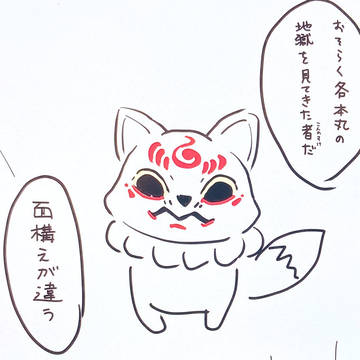 おそらく各本丸の
地獄を見てきた者だ
こんのすけ
面構えが違う